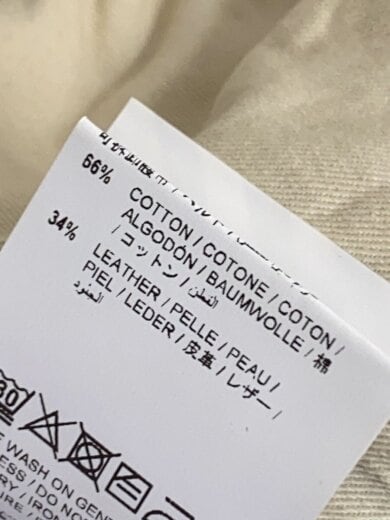 66% COTTON / COTONE / COTON /
ALGODÓN / BAUMWOLLE / 棉
/ コットン / القطن /
34% LEATHER / PELLE / PEAU /
PIEL / LEDER / 皮革 / レザー /
الجلود
30
WASH ON GEN
/ DO NO
/ IRON